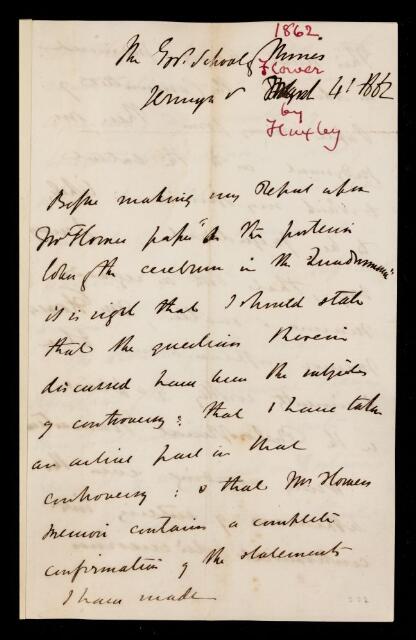 1862.
The Govt. School of Mines
Flower
Jermyn St 4th 1862
by
Huxley
Before making my Report upon
Mr Flower's paper "On the posterior
lobes of the cerebrum in the Quadrumana"
it is right that I should state
that the questions therein
discussed have been the subjects
of controversy: that I have taken
an active part in that
controversy: & that Mr Flowers
memoir contains a complete
confirmation of the statements
I have made